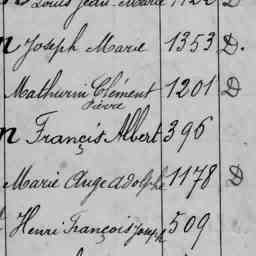 Louis Jean-Marie 1122 D
n Joseph Marie 1353 D.
Mathurin Clément 1201 D
Pierre
n Françis Albert 396
Marie Ange Adolphe 1178 D
Henri François Joseph 509